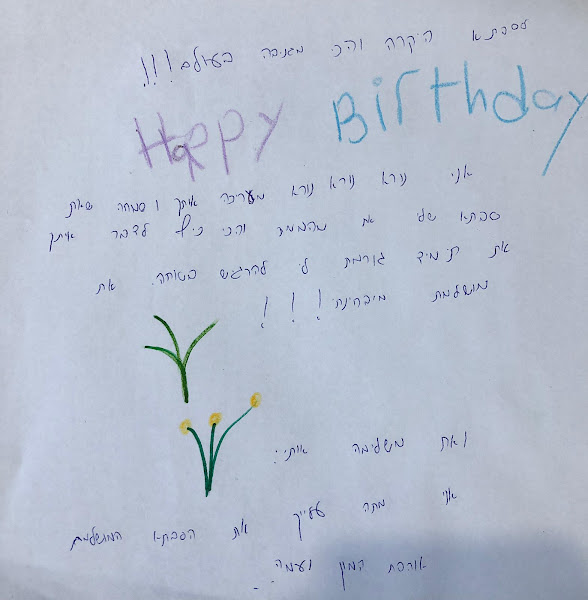 לסבתא היקרה והכי מגניבה בעולם!!!
Happy Birthday
אני נורא נורא נורא מעריכה איתך ושמחה שאת
סבתא שלי את מהממת והכי כיף לדבר איתך
את תמיד גורמת לי להרגיש בטוחה. את
מושלמת מיבחינתי!!!
ואת משלימה אותי:
אני מתה עלייך את הסבתא המושלמת
אוהבת המון